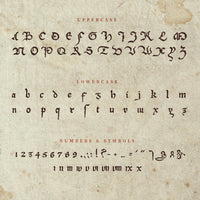 UPPERCASE
A B C D E F G H I J K L M
N O P Q R S T U V W X Y Z
LOWERCASE
a b c d e f g h i j k l m
n o p q r s t u v w x y z
NUMBERS & SYMBOLS
1 2 3 4 5 6 7 8 9